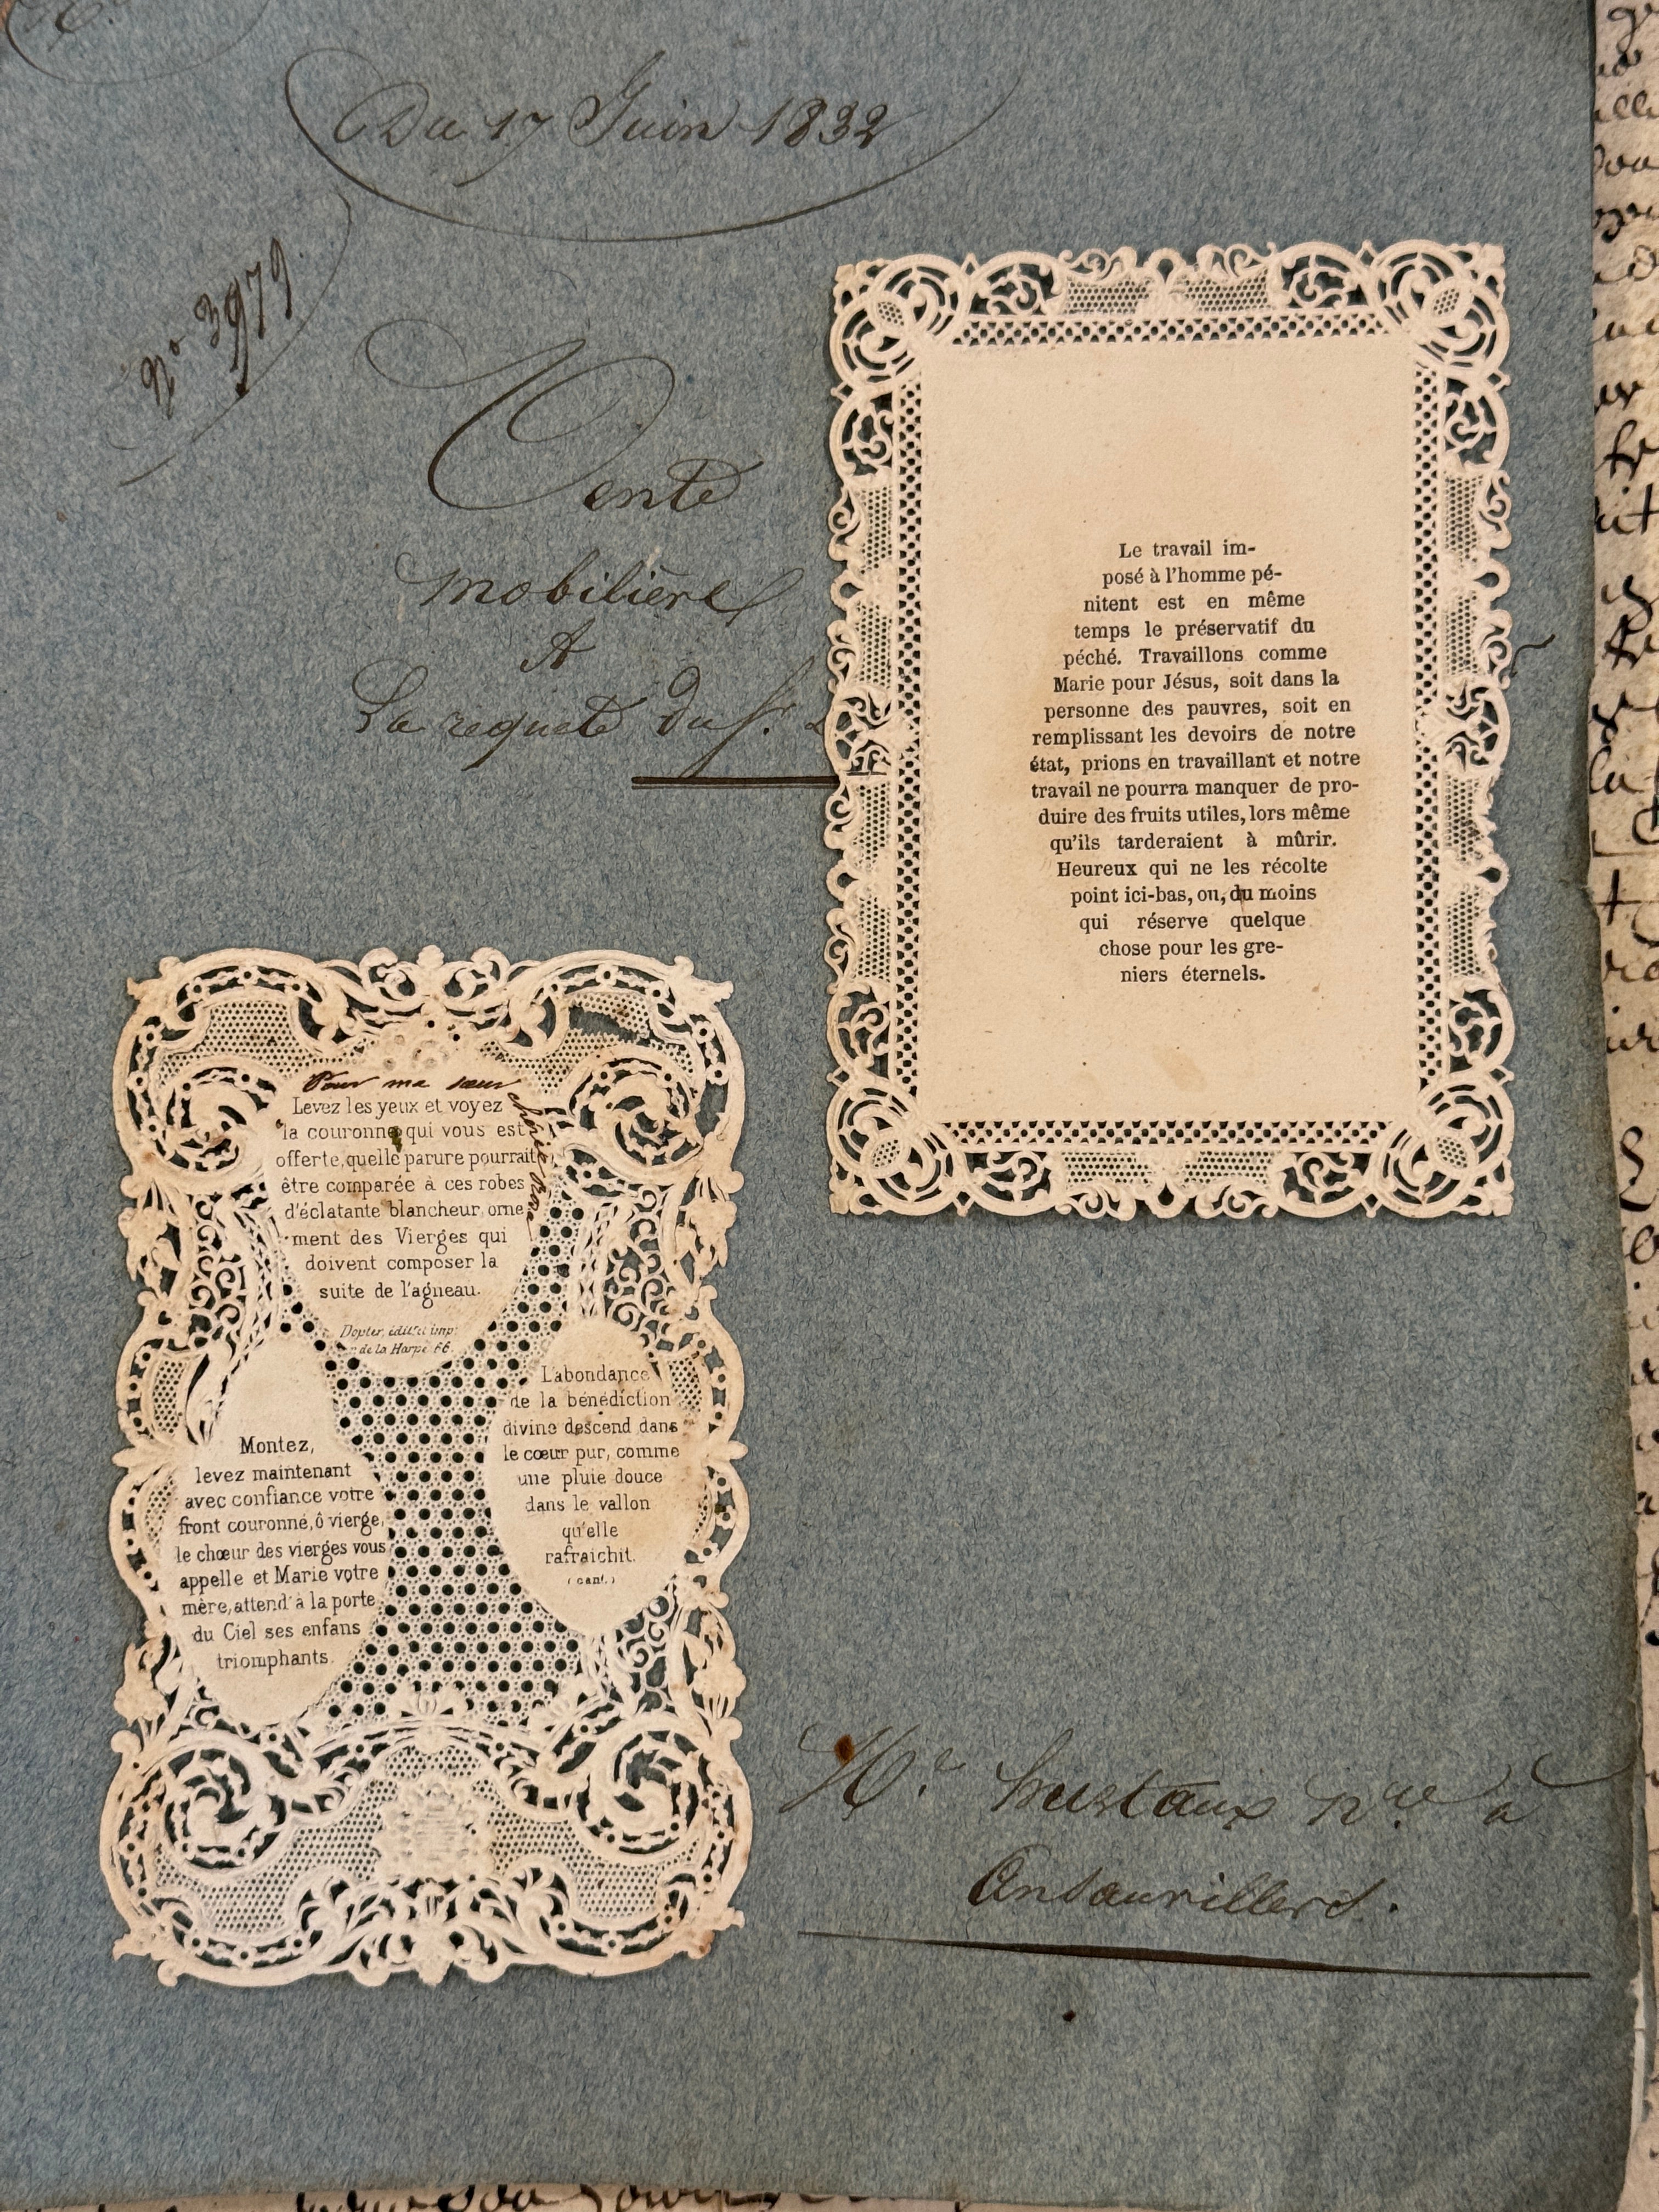 Du 17 Juin 1832
No 3979
Vente
mobilière
A
La requete du Sr.
Le travail im-
posé à l'homme pé-
nitent est en même
temps le préservatif du
péché. Travaillons comme
Marie pour Jésus, soit dans la
personne des pauvres, soit en
remplissant les devoirs de notre
état, prions en travaillant et notre
travail ne pourra manquer de pro-
duire des fruits utiles, lors même
qu'ils tarderaient à mûrir.
Heureux qui ne les récolte
point ici-bas, ou, du moins
qui réserve quelque
chose pour les gre-
niers éternels.
Pour ma sœur chérie
Levez les yeux et voyez
la couronne qui vous est
offerte, quelle parure pourrait
être comparée à ces robes
d'éclatante blancheur, orne
ment des Vierges qui
doivent composer la
suite de l'agneau.
Dopter, édit. et imp.
de la Harpe 66.
L'abondance
de la bénédiction
divine descend dans
le cœur pur, comme
une pluie douce
dans le vallon
qu'elle
rafraichit.
(cant.)
Montez,
levez maintenant
avec confiance votre
front couronné, ô vierge,
le chœur des vierges vous
appelle et Marie votre
mère, attend à la porte
du Ciel ses enfans
triomphants.
Me nre à
Ansauvillers.